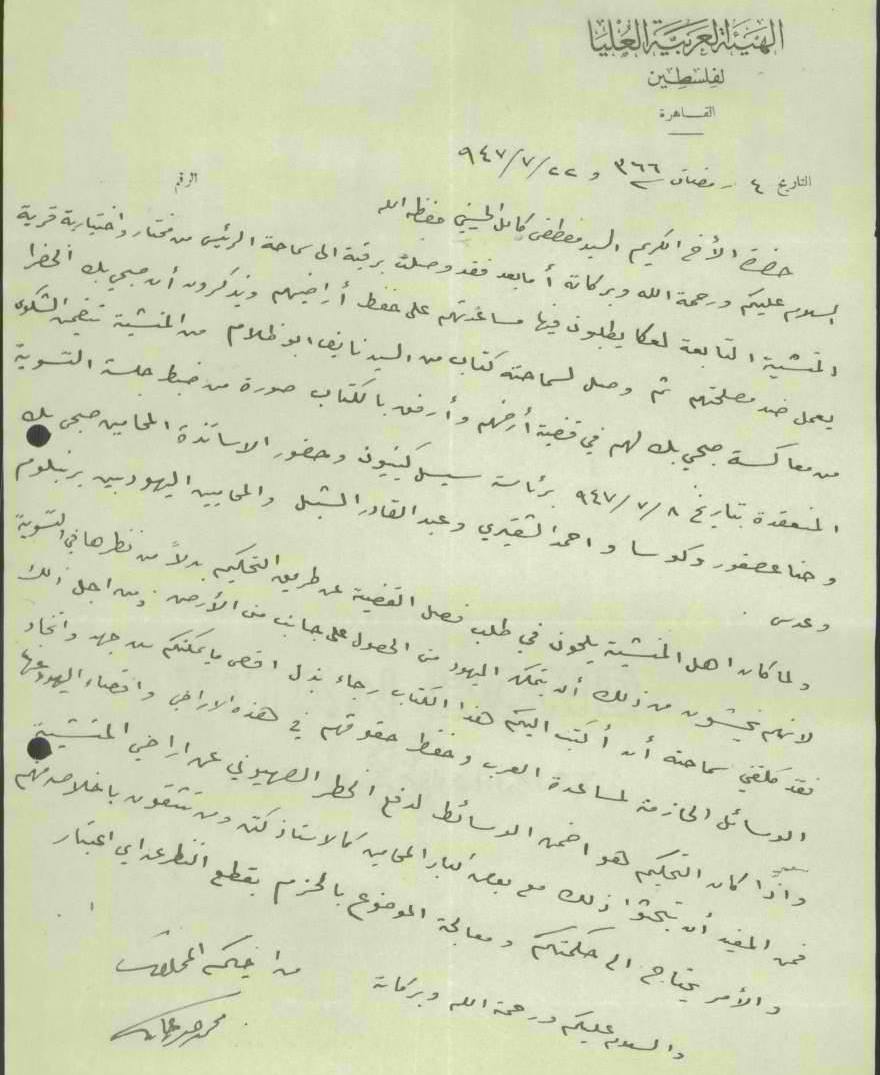 الهيئة العربية العليا
لفلسطين
القاهرة
التاريخ ٤ رمضان ٣٦٦ و ٢٢/٧/٩٤٧
الرقم
حضرة الأخ الكريم السيد مصطفى كامل الحسيني حفظه الله
السلام عليكم ورحمة الله وبركاته أما بعد فقد وصلت برقية الى سماحة الرئيس من مختار واختيارية قرية
المنشية التابعة لعكا يطلبون فيها مساعدتهم على حفظ أراضيهم ويذكرون أن صبحي بك الخضرا
يعمل ضد مصلحتهم ثم وصل لسماحته كتاب من السيد نايف ابو ظلام من المنشية تتضمن الشكوى
من معاكسة صبحي بك لهم في قضية أرضهم وأرفق بالكتاب صورة من ضبط جلسة التسوية
المنعقدة بتاريخ ٨/٧/٩٤٧ برئاسة سيسل كينيون وحضور الاساتذة المحامين صبحي بك
وحنا عصفور وكوسا واحمد الشقيري وعبد القادر الشبل والمحاميين اليهوديين برنبلوم
وعدس .
ولما كان اهل المنشية يلحون في طلب فصل القضية عن طريق التحكيم بدلاً من نظرها في التسوية
لانهم يخشون من ذلك أن يتمكن اليهود من الحصول على جانب من الأرض . ومن اجل ذلك
فقد كلفني سماحته أن أكتب اليكم هذا الكتاب رجاء بذل اقصى ما يمكنكم من جهد واتخاذ
الوسائل الحازمة لمساعدة العرب وحفظ حقوقهم في هذه الاراضي واقصاء اليهود عنها
واذا كان التحكيم هو اضمن الوسائط لدفع الخطر الصهيوني عن اراضي المنشية
فمن المفيد أن تبحثوا ذلك مع بعض كبار المحامين كالاستاذ كتن ومن تثقون باخلاصه منهم
والأمر يحتاج الى حكمتكم ومعالجة الموضوع بالحزم بقطع النظر عن اي اعتبار
والسلام عليكم ورحمة الله وبركاته
من اخيكم المخلص